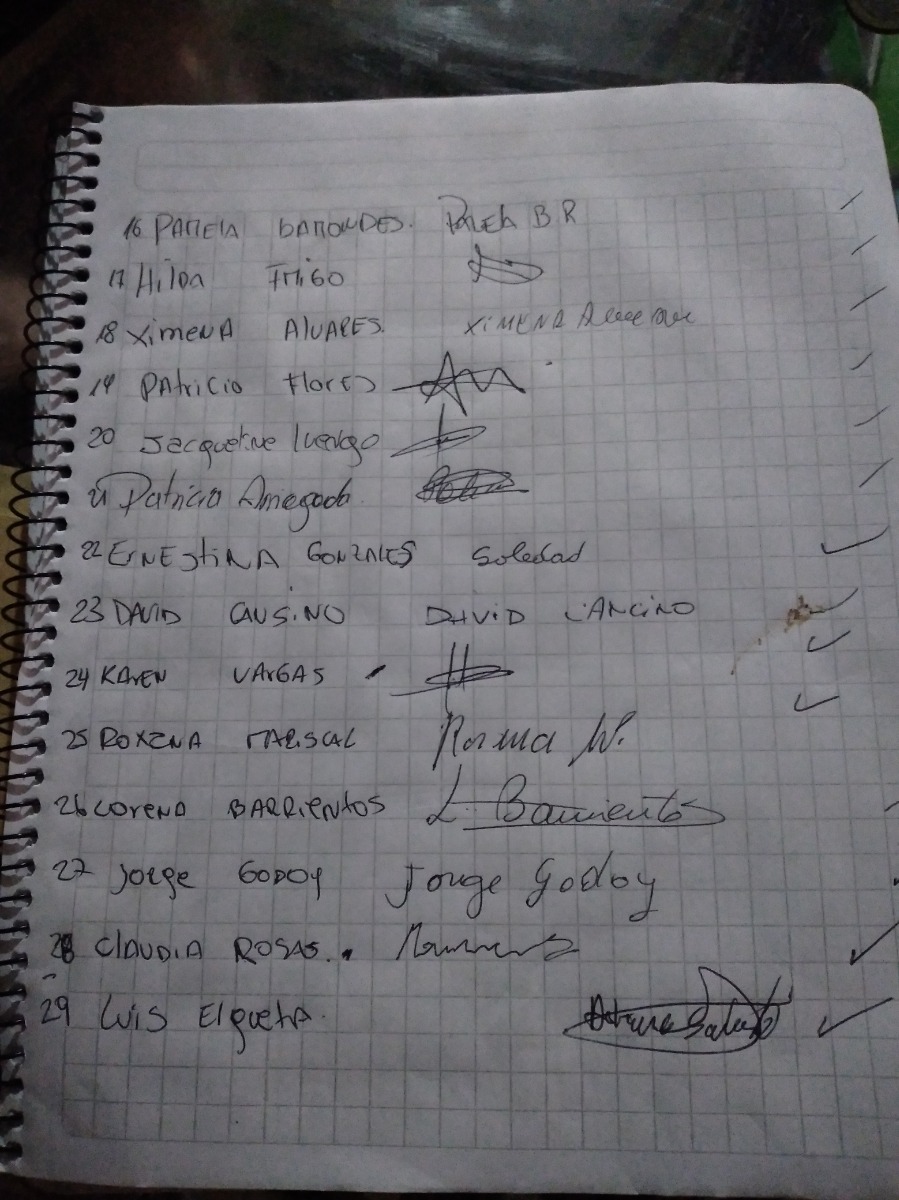 16 PAMELA BAMONDES. PAMELA B R
17 Hilda
18 XimeNA AlVARES. XIMENA
19 PAtricio FlorES
20 Jacqueline luengo
21 Patricia Arriegada.
22 ErNEStiNA GONZALES Soledad
23 DAVID CAUSINO DAVID CANCINO
24 KAreN VArGAS
25 ROXENA MARISCAL M.
26 LoreNA BARRiENtOS L. Barrientos
27 Jorge GODOY Jorge Godoy
28 ClAUDiA ROSAS.
29 LuiS ElguetA.